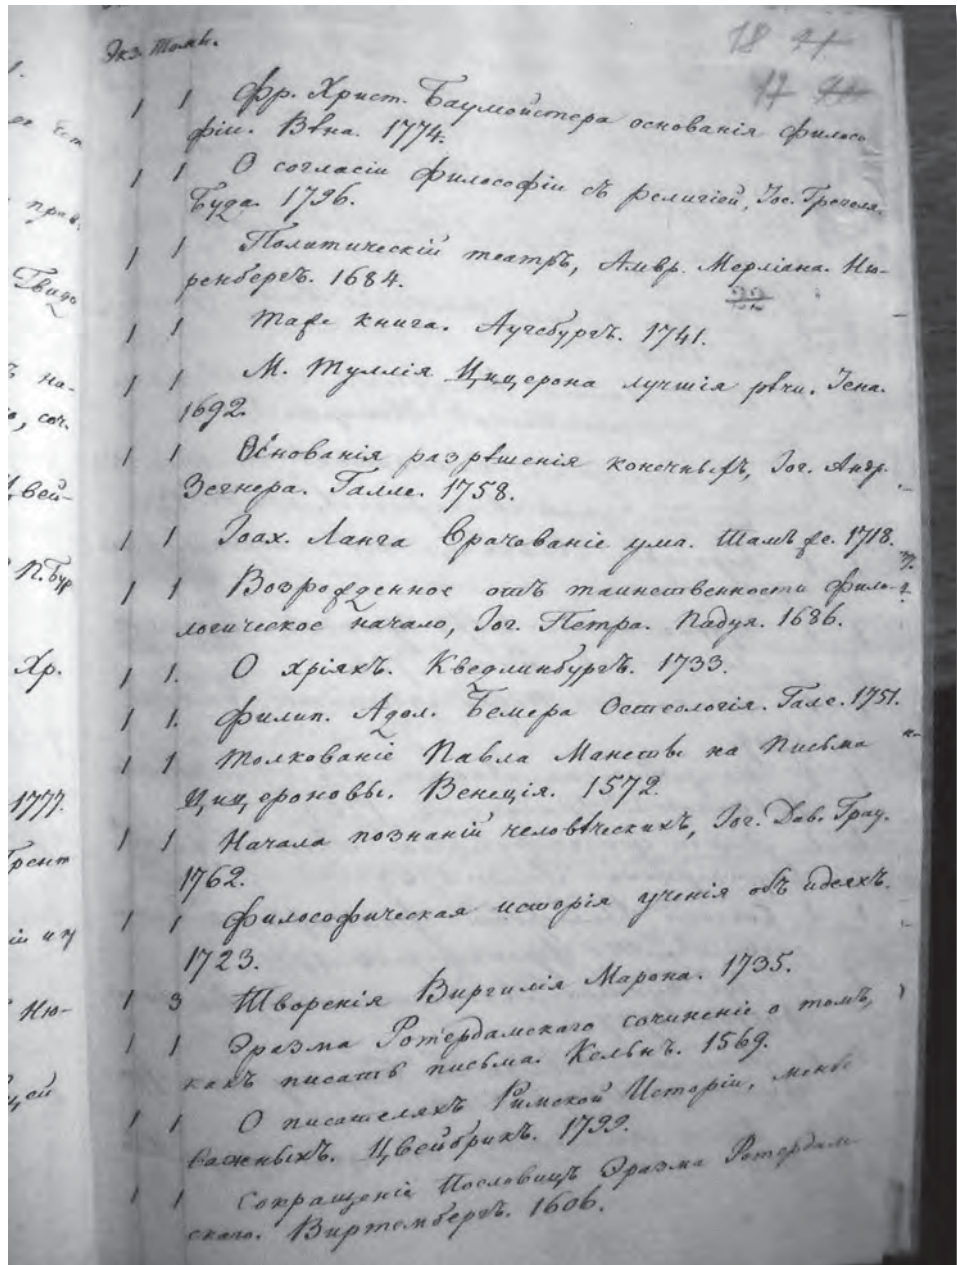 Экз. Томы.
18
1 1 Фр. Христ. Баумейстера основанія филосо
фіи. Вѣна. 1774.
1 1 О согласіи философіи съ религіей, Іос. Гречеля.
Буда. 1796.
1 1 Политическій театръ, Амвр. Мерліана. Ню-
ренбергъ. 1684.
1 1 Таже книга. Аугсбургъ. 1741.
1 1 М. Туллія Цицерона лучшія рѣчи. Іена.
1692.
1 1 Основанія разрѣшенія конечныхъ, Іог. Андр.
Зегнера. Галле. 1758.
1 1 Іоах. Ланга Врачованіе ума. 1718.
1 1 Возрожденное отъ таинственности фило-
логическое начало, Іог. Петра. Падуя. 1686.
1 1. О хріяхъ. Кведлинбургъ. 1733.
1 1. Филип. Адол. Бемера Остеологія. Гале. 1751.
1 1 Толкованіе Павла на Письма
Цицероновы. Венеція. 1572.
1 1 Начала познаній человѣческихъ, Іог. Дав. Грау.
1762.
1 1 Философическая исторія ученія объ идеяхъ.
1723.
1 3 Творенія Виргилія Марона. 1735.
1 1 Эразма Ротердамскаго сочиненіе о томъ,
какъ писать письма. Кельнъ. 1569.
1 1 О писателяхъ Римской Исторіи, менѣе
важныхъ. Цвейбрикъ. 1799.
1 1 Сокращеніе Пословицъ Эразма Ротердам
скаго. Виртембергъ. 1606.